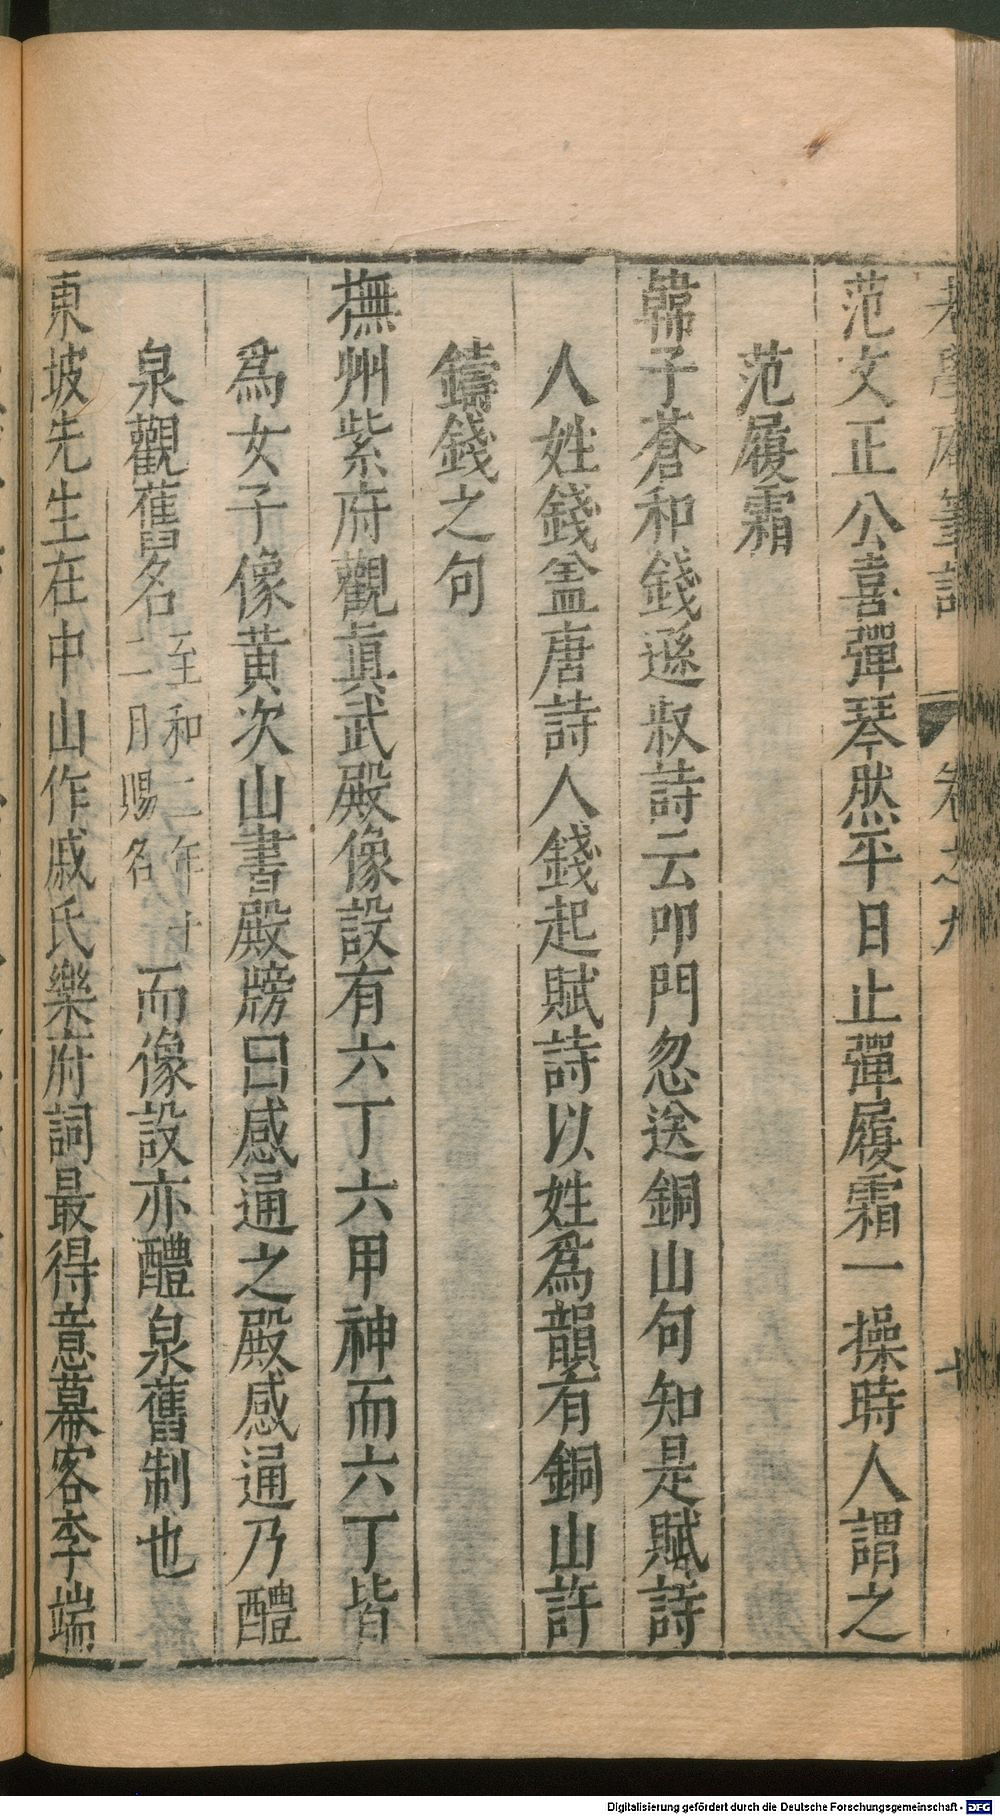 老學庵筆記 卷之九
范文正公喜彈琴然平日止彈履霜一操時人謂之
范履霜
韓子蒼和錢遜叔詩云叩門忽送銅山句知是賦詩
人姓錢盖唐詩人錢起賦詩以姓爲韻有銅山許
鑄錢之句
撫州紫府觀眞武殿像設有六丁六甲神而六丁皆
爲女子像黄次山書殿牓曰感通之殿感通乃醴
泉觀舊名至和二年十二月賜名而像設亦醴泉舊制也
東坡先生在中山作戚氏樂府詞最得意幕客李端
Digitalisierung gefördert durch die Deutsche Forschungsgemeinschaft - DFG